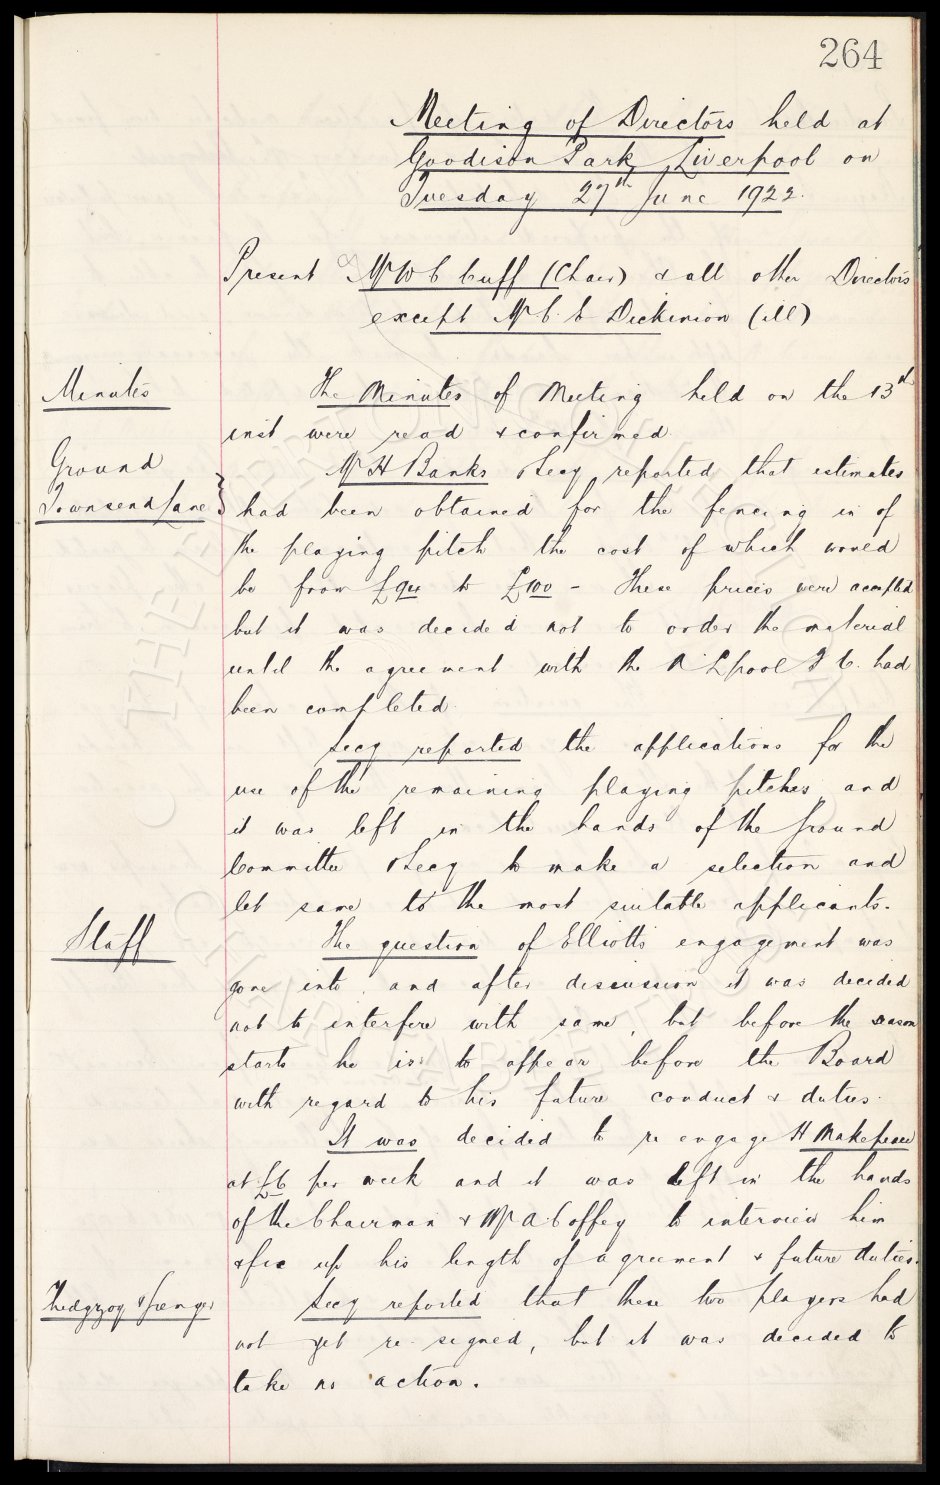 264
Meeting of Directors held at
Goodison Park, Liverpool on
Tuesday 27th June 1922.
Present Mr W C Cuff (Chair) & all other Directors
except Mr C. E. Dickinson (ill)
Minutes
The Minutes of Meeting held on the 13th
inst were read & confirmed
Ground
Townsend Lane
Mr H Banks & Secy reported that estimates
had been obtained for the fencing in of
the playing pitch the cost of which would
be from £94 to £100 - These prices were accepted
but it was decided not to order the material
until the agreement with the N L'pool F C. had
been completed.
Secy reported the applications for the
use of the remaining playing pitches and
it was left in the hands of the Ground
Committee & Secy to make a selection and
let same to the most suitable applicants.
Staff
The question of Elliotts engagement was
gone into, and after discussion it was decided
not to interfere with same, but before the season
starts he is to appear before the Board
with regard to his future conduct & duties.
It was decided to re engage H Makepeace
at £6 per week and it was left in the hands
of the Chairman & Mr A Coffey to interview him
& fix up his length of agreement & future duties.
Secy reported that these two players had
not yet re-signed, but it was decided to
take no action.